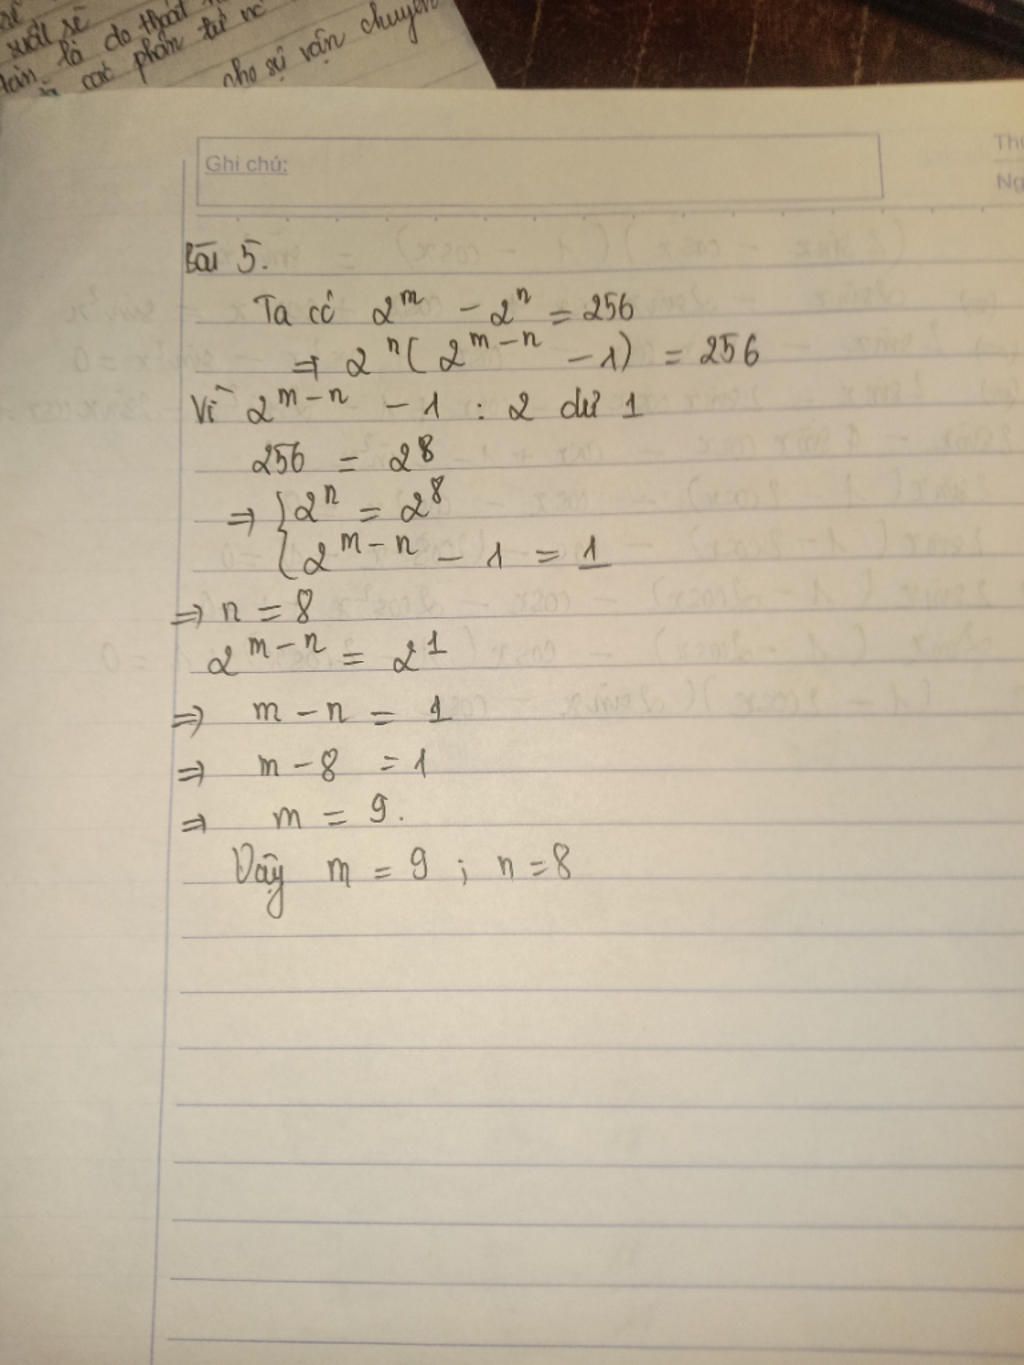 suất sẽ
là do thoát
các phân tử
cho sự vận chuyển
Ghi chú:
Bài 5.
Ta có 2^m - 2^n = 256
⇒ 2^n (2^{m-n} - 1) = 256
Vì 2^{m-n} - 1 : 2 dư 1
256 = 2^8
⇒ { 2^n = 2^8
{ 2^{m-n} - 1 = 1
⇒ n = 8
2^{m-n} = 2^1
⇒ m - n = 1
⇒ m - 8 = 1
⇒ m = 9.
Vậy m = 9 ; n = 8